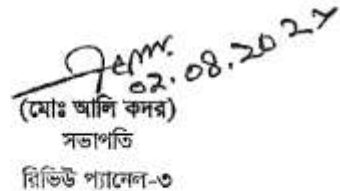 02.08.2021
(মোঃ আলি কদর)
সভাপতি
রিভিউ প্যানেল-৩